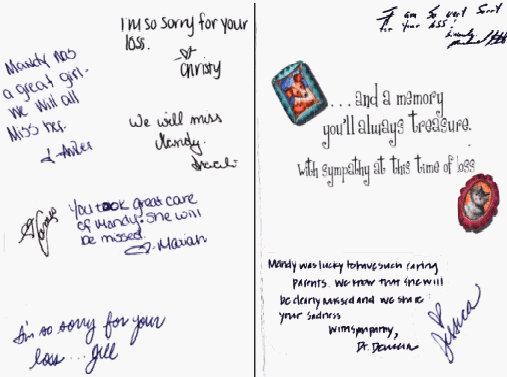 I'm so sorry for your
loss.
Christy
Mandy was
a great girl.
We will all
Miss her.
We will miss
Mandy.
You took great care
of Mandy. She will
be missed.
- Marian
I'm so sorry for your
loss... Jill
I am so very sorry
for your loss!
...and a memory
you'll always treasure.
With sympathy at this time of loss
Mandy was lucky to have such caring
parents. We know that she will
be dearly missed and we share
your sadness
With sympathy,
Dr.
Jessica